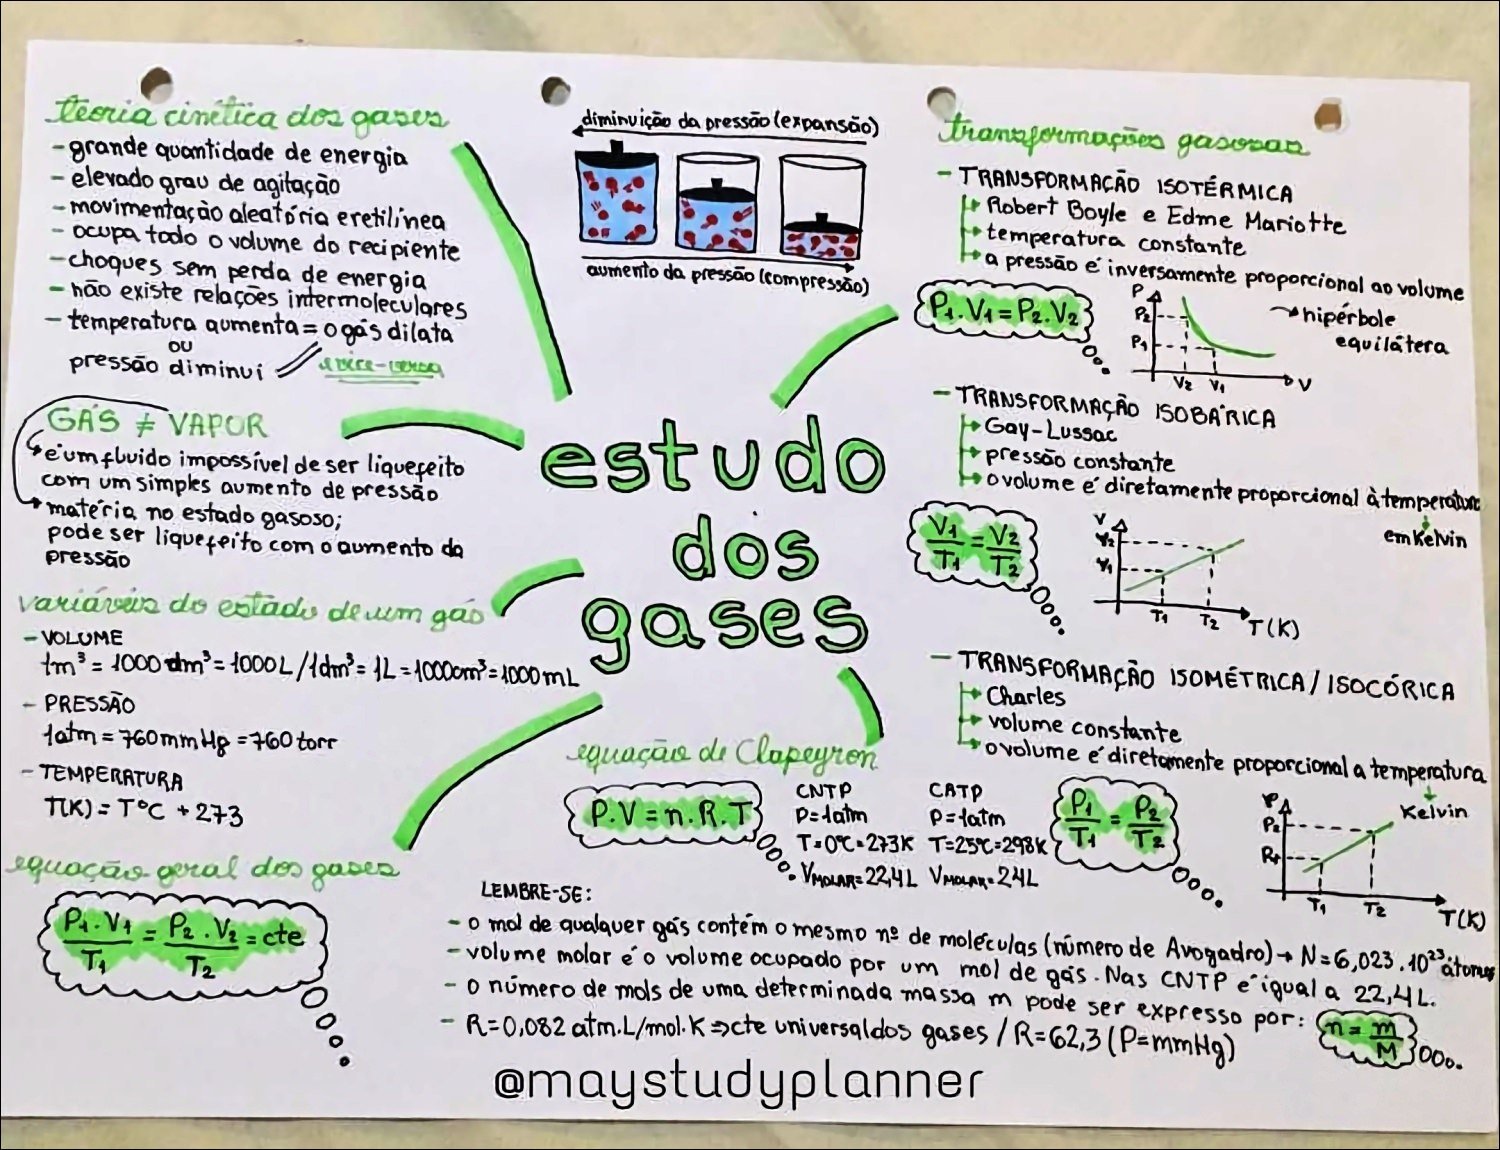 teoria cinética dos gases
- grande quantidade de energia
- elevado grau de agitação
- movimentação aleatória e retilínea
- ocupa todo o volume do recipiente
- choques sem perda de energia
- não existe relações intermoleculares
- temperatura aumenta = o gás dilata
ou
pressão diminui
e vice-versa
GÁS ≠ VAPOR
é um fluido impossível de ser liquefeito
com um simples aumento de pressão
matéria no estado gasoso;
pode ser liquefeito com o aumento da
pressão
variáveis do estado de um gás
- VOLUME
1m³ = 1000 dm³ = 1000L / 1dm³ = 1L = 1000cm³ = 1000mL
- PRESSÃO
1atm = 760mmHg = 760 torr
- TEMPERATURA
T(K) = T°C + 273
equação geral dos gases
P1.V1/T1 = P2.V2/T2 = cte
diminuição da pressão (expansão)
aumento da pressão (compressão)
estudo
dos
gases
equação de Clapeyron
P.V = n.R.T
CNTP
P=1atm
T=0°C=273K
VMOLAR=22,4L
CATP
P=1atm
T=25°C=298K
VMOLAR=24L
transformações gasosas
- TRANSFORMAÇÃO ISOTÉRMICA
Robert Boyle e Edme Mariotte
temperatura constante
a pressão é inversamente proporcional ao volume
P1.V1 = P2.V2
P
P2
P1
V2 V1
V
hipérbole
equilátera
- TRANSFORMAÇÃO ISOBÁRICA
Gay-Lussac
pressão constante
o volume é diretamente proporcional à temperatura
em Kelvin
V1/T1 = V2/T2
V
V2
V1
T1 T2
T(K)
- TRANSFORMAÇÃO ISOMÉTRICA / ISOCÓRICA
Charles
volume constante
o volume é diretamente proporcional a temperatura
Kelvin
P1/T1 = P2/T2
P
P2
P1
T1 T2
T(K)
LEMBRE-SE:
- o mol de qualquer gás contém o mesmo nº de moléculas (número de Avogadro) → N=6,023.10²³ átomos
- volume molar é o volume ocupado por um mol de gás. Nas CNTP é igual a 22,4L.
- o número de mols de uma determinada massa m pode ser expresso por:
n = m/M
- R=0,082 atm.L/mol.K ⇒ cte universal dos gases / R=62,3 (P=mmHg)
@maystudyplanner